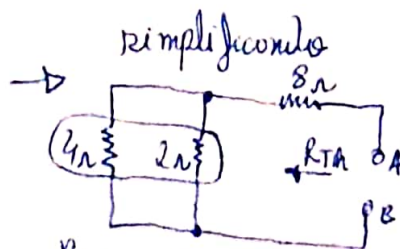 simplificando
8Ω
4Ω
2Ω
RTH
A
B